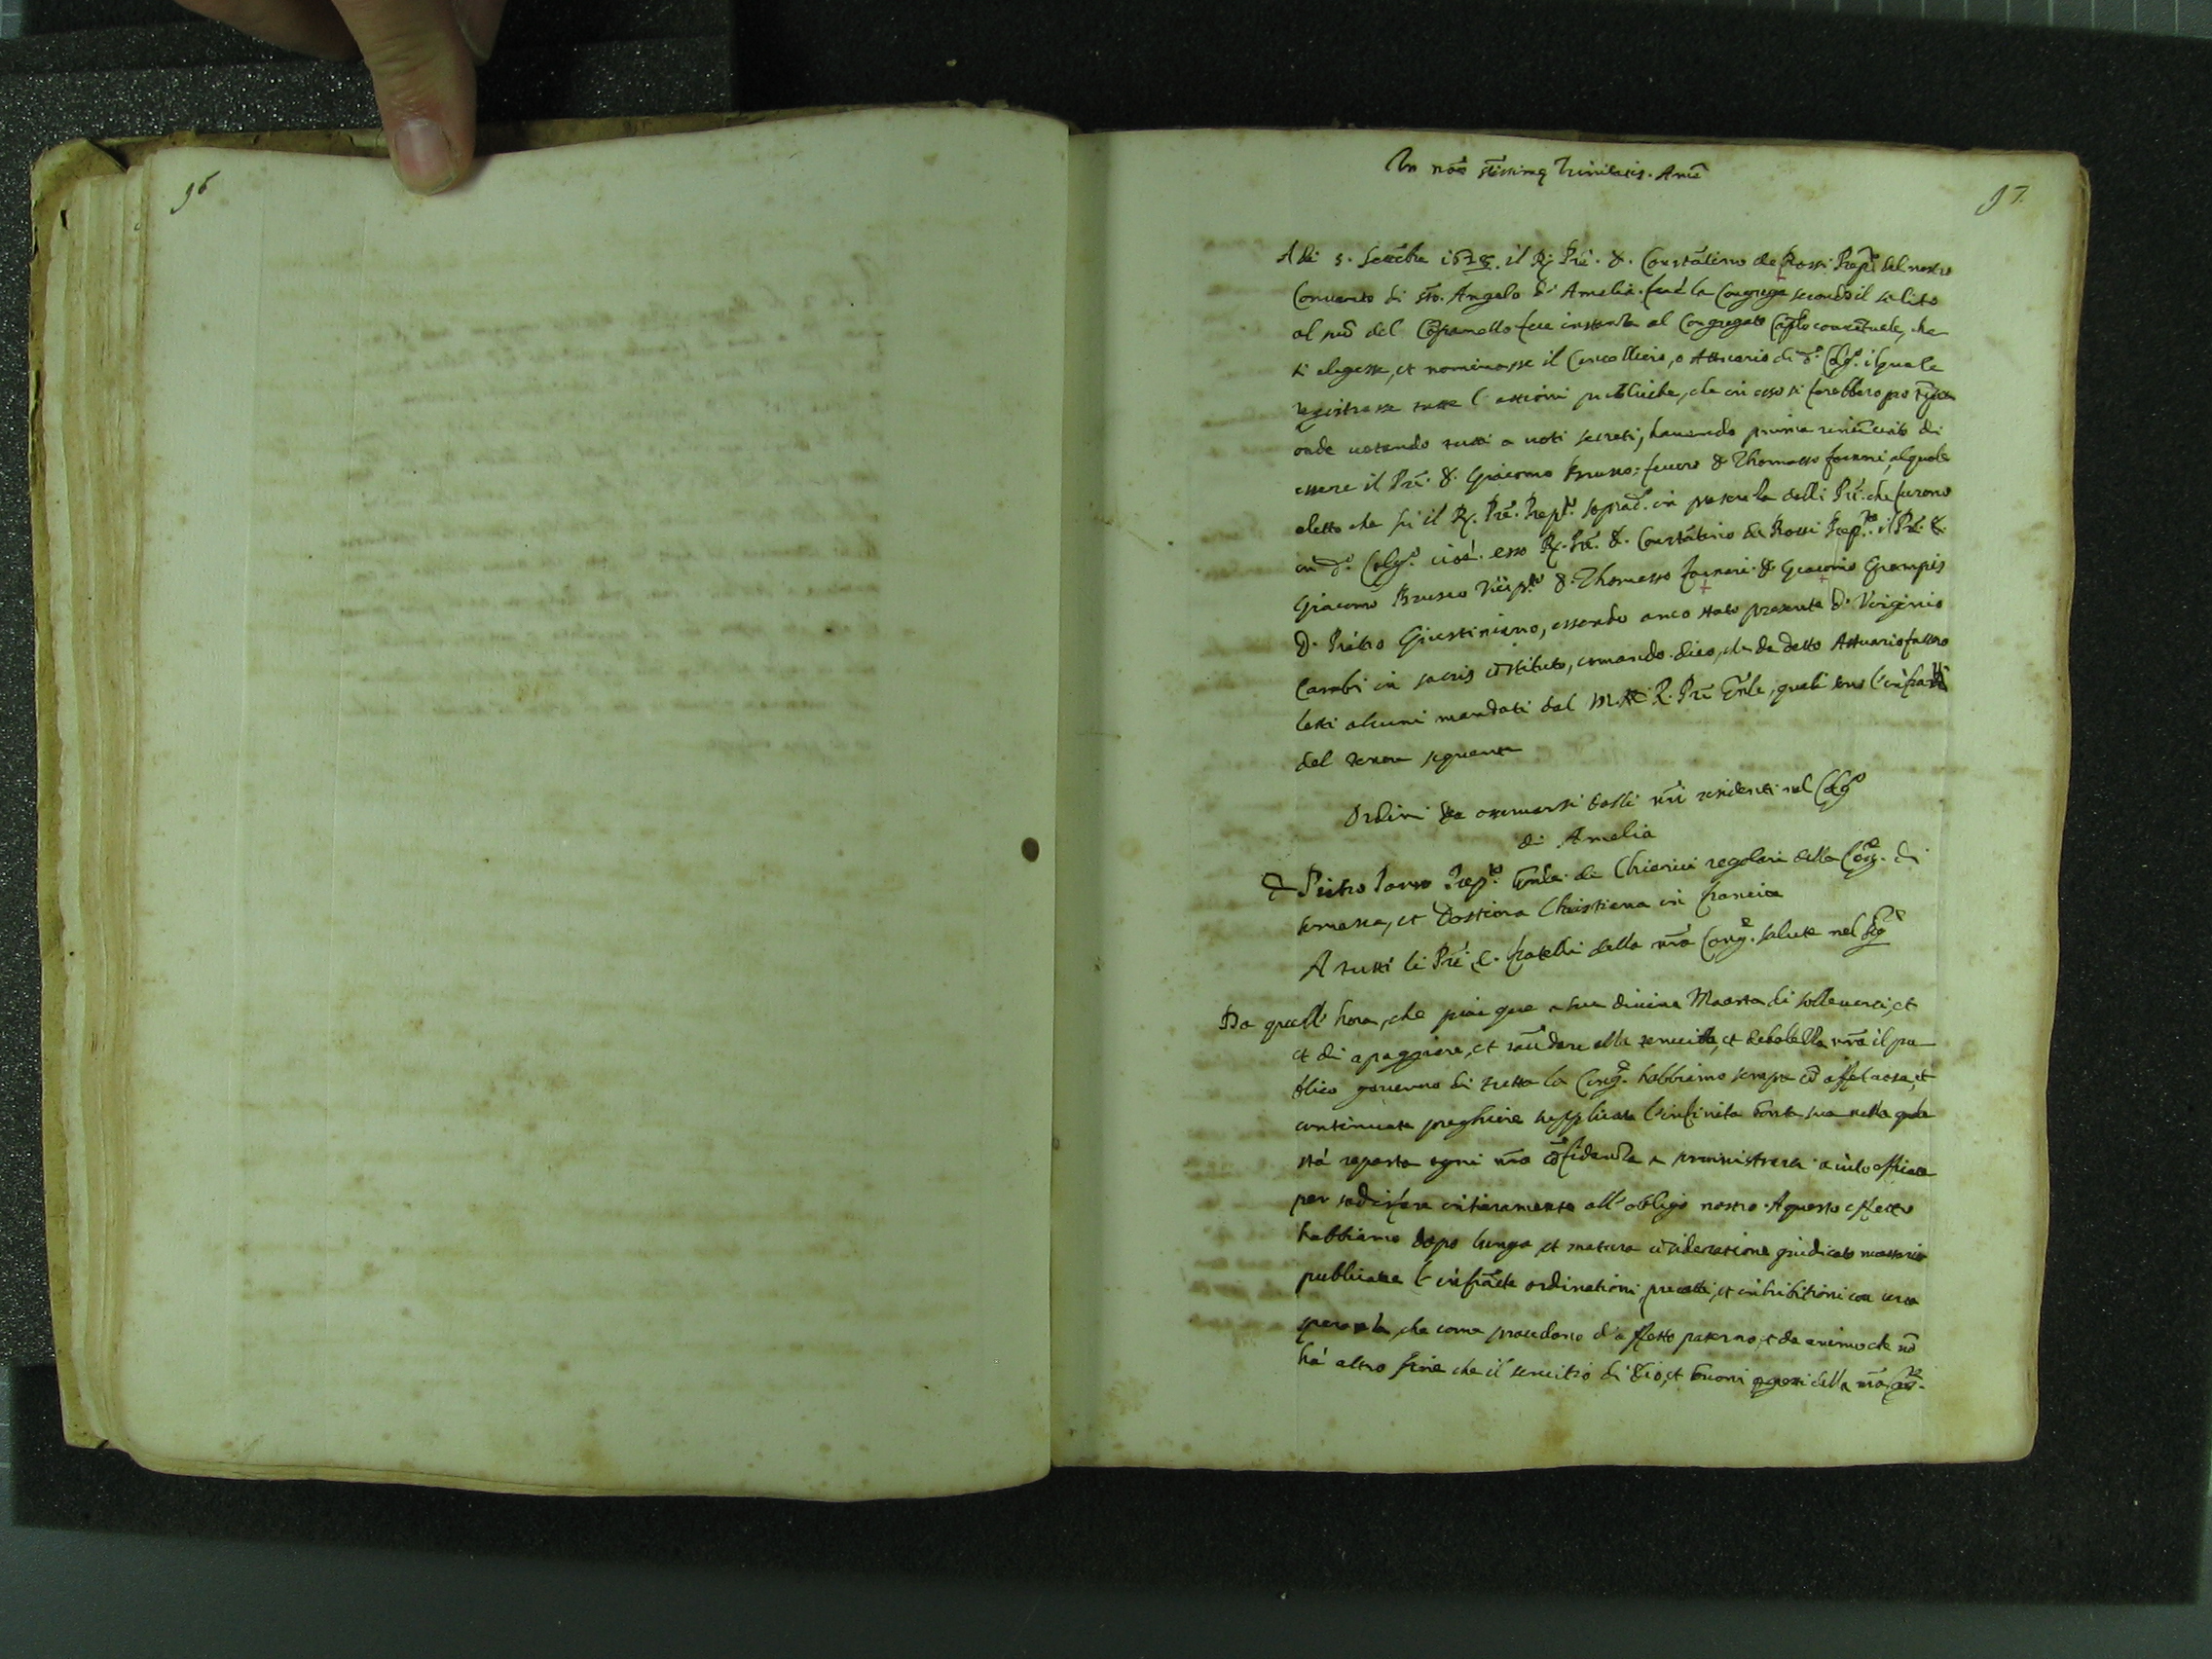 96
97.
In nõe s̃tissimę Trinitatis. Amẽ
A di 5. Settẽbre 1625. il R. Prẽ. D. Constãtino de Rossi Prep.to del nostro
Convento di sto. Angelo di Amelia. fece la Congrega secondo il solito
al suõ del Cãpanello fece instanza al Congregato Caplo conventuale, che
si elegesse, et nominasse il Cancelliero, o Attuario di d.o Colg.o il quale
registrasse tutte l'attioni publiche, che in esso si farebbero
onde votando tutti a voti secreti, havendo prima renũciato di
essere il Prẽ. D. Giacomo Brusco: fecero D. Thomasso fornari, al quale
eletto che fu il R. Prẽ. Prep.to soprad.o in presenza delli Prĩ. che furono
in d.o Colg.o cioè. esso R. Prẽ. D. Constãtino de Rossi Prep.to il Prẽ. D.
Giacomo Brusco Vicep.to D. Thomasso fornari. D. Giacomo Grampis
D. Pietro Giustiniano, essendo anco stato presente D. Virginio
Cambi in sacris cõstituto, comandò dico, che da detto Attuario fussero
letti alcuni mandati dal M. R. Prẽ Gñle, quali sono l'infratti
del tenor seguente
Ordini da osservarsi dalli nrĩ residenti nel Colg.o
di Amelia
D. Pietro Prep.to Gñle de Chierici regolari della Cõg. di
somasca, et Dottrina Christiana in francia
A tutti li Prĩ e. fratelli della nrã Cong.e salute nel Sig.e
Da quell' hora, che piacque a sua divina Maestà di sollevarci, et
et di apoggiare, et raccõdare alla tenuità, et debolezza nrã il pu
blico governo di tutta la Cong.e habbiamo sempre cõ affettuosa, et
continuate preghiere supplicata l'infinita bontà sua nella quale
stà reposta ogni nrã cõfidenza a somministrarci aiuto efficace
per sodisfare intieramente all'obligo nostro. A questo effetto
habbiamo dopo lunga, et matura cõsideratione giudicato necessario
publicare l'infratte ordinationi, precetti, et inhibitioni con certa
speranza, che come procedono d'affetto paterno, et da animo che nõ
hà altro fine che il servitio di Dio, et buoni della nrã Cõg.e